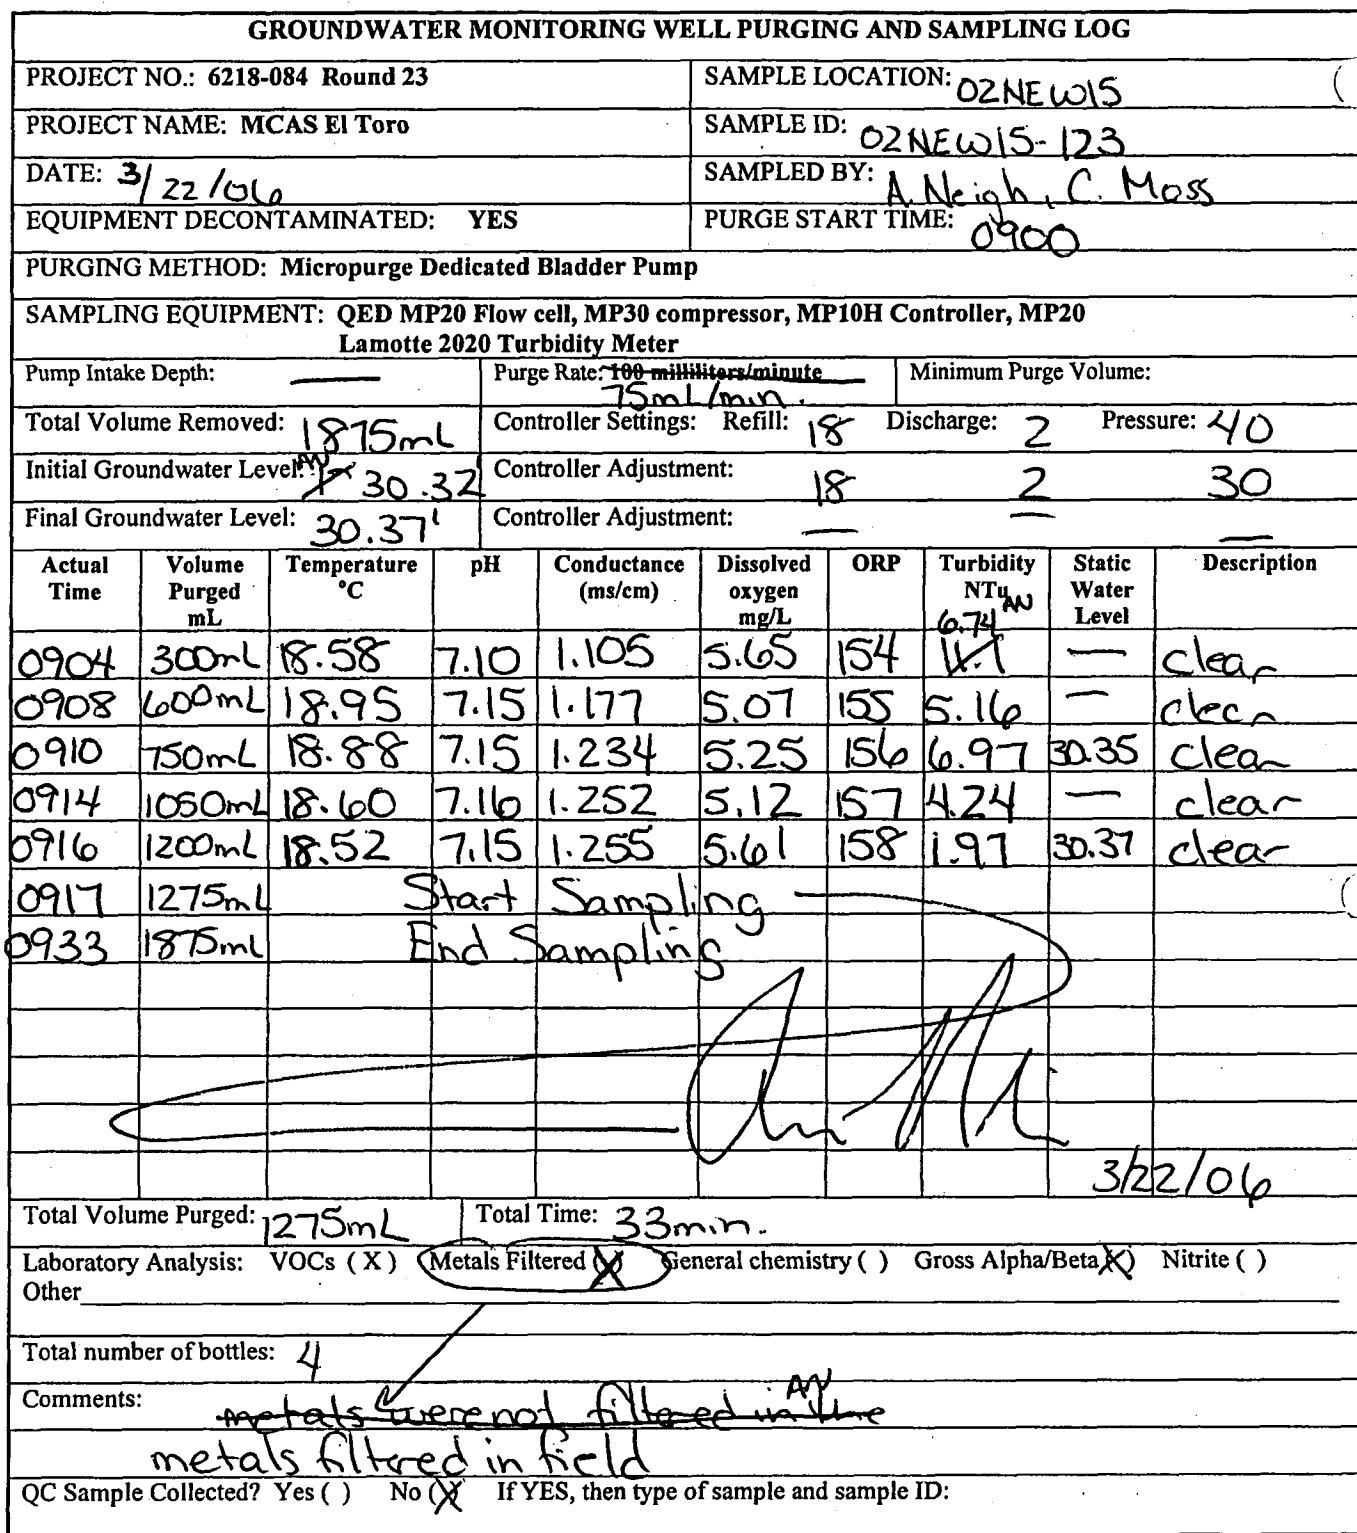 GROUNDWATER MONITORING WELL PURGING AND SAMPLING LOG
PROJECT NO.: 6218-084 Round 23 SAMPLE LOCATION: 02NEW15
PROJECT NAME: MCAS El Toro SAMPLE ID: 02NEW15-123
DATE: 3/22/06 SAMPLED BY: A. Neigh, C. Moss
EQUIPMENT DECONTAMINATED: YES PURGE START TIME: 0900
PURGING METHOD: Micropurge Dedicated Bladder Pump
SAMPLING EQUIPMENT: QED MP20 Flow cell, MP30 compressor, MP10H Controller, MP20
Lamotte 2020 Turbidity Meter
Pump Intake Depth: — Purge Rate: 100 milliliters/minute Minimum Purge Volume:
75mL/min.
Total Volume Removed: 1875mL Controller Settings: Refill: 18 Discharge: 2 Pressure: 40
Initial Groundwater Level: AN 30.32' Controller Adjustment: 18 2 30
Final Groundwater Level: 30.37' Controller Adjustment: — — —
Actual Time Volume Purged mL Temperature °C pH Conductance (ms/cm) Dissolved oxygen mg/L ORP Turbidity NTu Static Water Level Description
6.74 AN
0904 300mL 18.58 7.10 1.105 5.65 154 11.1 — clear
0908 600mL 18.95 7.15 1.177 5.07 155 5.16 — clear
0910 750mL 18.88 7.15 1.234 5.25 156 6.97 30.35 clear
0914 1050mL 18.60 7.16 1.252 5.12 157 4.24 — clear
0916 1200mL 18.52 7.15 1.255 5.61 158 1.97 30.37 clear
0917 1275mL Start Sampling
0933 1875mL End Sampling
3/22/06
Total Volume Purged: 1275mL Total Time: 33min.
Laboratory Analysis: VOCs (X) Metals Filtered (X) General chemistry ( ) Gross Alpha/Beta (X) Nitrite ( )
Other
Total number of bottles: 4
Comments: metals were not filtered in the AN
metals filtered in field
QC Sample Collected? Yes ( ) No (X) If YES, then type of sample and sample ID: